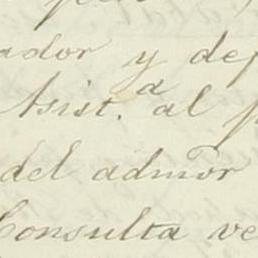 ador y dep
Asist.a al p
del admor
Consulta ve